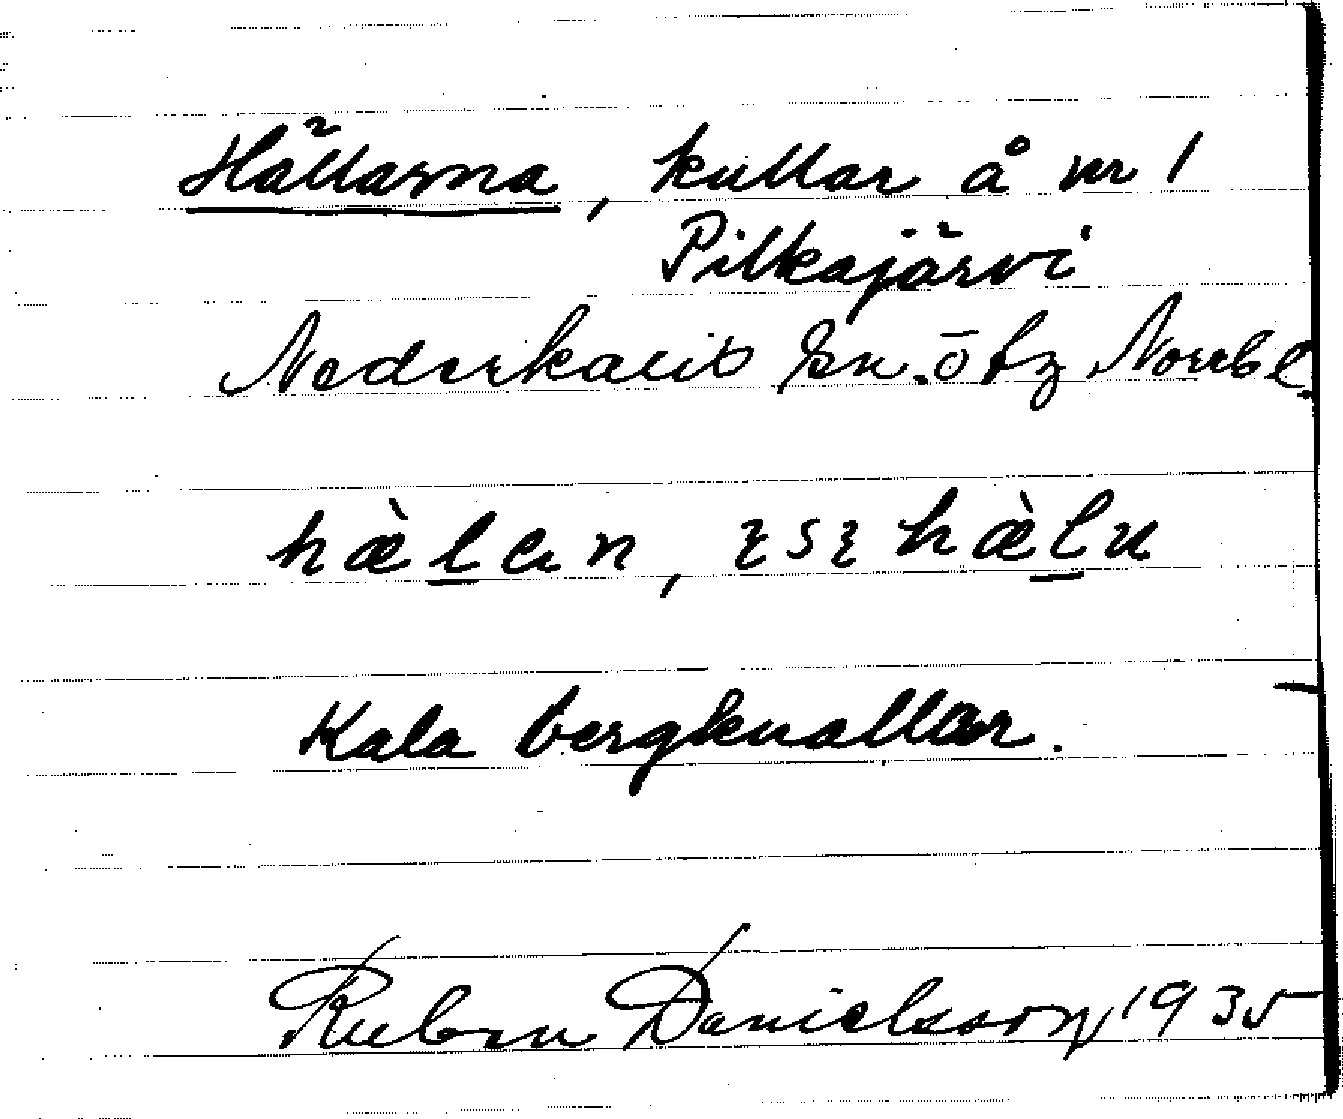 Hällarna, kullar å nr 1
Pilkajärvi
Nederkalix sn. ö tg Norrb l
hælan, ꜩsꜩ hælu
Kala bergknallar.
Ruben Danielsson 1935